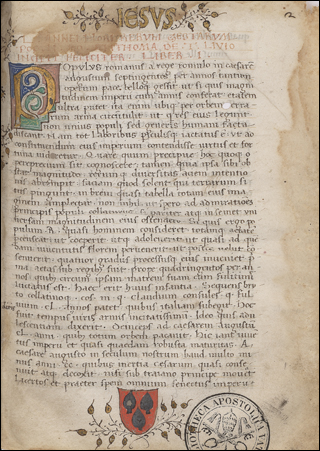 IESVS
OPVLVS romanus a rege romulo in caesarē
augustum septingentos per annos tantum
operum pace belloq; gessit ut si quis magni
tudinem imperii cum annis conferat etatem
ultra putet ita enim ubiq; per orbem terra
rum arma circūtulit ut qui res eius legunt
non unius populi sed generis humani facta
discant. Nam tot laboribus periculisq; iactatus ē. ut ad
constituendum eius imperium contendisse virtus et for
tuna uideretur. Quare quom precipue hoc quoq; o
perepretium sit cognoscere tamen quia ipsa sibi ob
stat magnitudo rerumq; diuersitas aciem intentio
nis abrumpit faciam quod solent qui terrarum si
tus pingunt in breui quasi tabella totam eius ima
ginem amplectar non nihil ut spero ad admirationē
principis populi collaturus si pariter atq; insemel uni
uersam magnitudinem eius ostendero. Siquis ergo po
pulum R. quasi hominem consideret totamq; aetatē
percenseat ut coeperit utq; adoleuerit ut quasi ad quē
dam iuuentutis florem peruenerit ut postea uelut co
senuerit quatuor gradus processusq; eius inueniet pri
ma aetas sub regibus fuit prope quadringentos per an
nos quibus circum ipsam matrem suam cum finitimis
luctatus est. Haec erit huius infantia. Sequens bru
to collatinoq; cos. in q. claudium consules q. ful
uium cl. annos patet quibus italiam subegit. Hoc
fuit tempus uiris armis incitatissimū. Ideo quis ado
lescentiam dixerit. Deinceps ad caesarem Augustū
cl. anni quibus totum orbem pacauit. Hic iam iuuē
tus imperii et quasi quaedam robusta maturitas. A
caesare augusto in seculum nostrum haud multo mi
nus anni .cc. quibus inertia cesarum quasi conse
nuit atq; decoxit nisi sub traiano principe mouet
lacertos et praeter spem omnium senectus imperii
BIBLIOTHECA APOSTOLICA